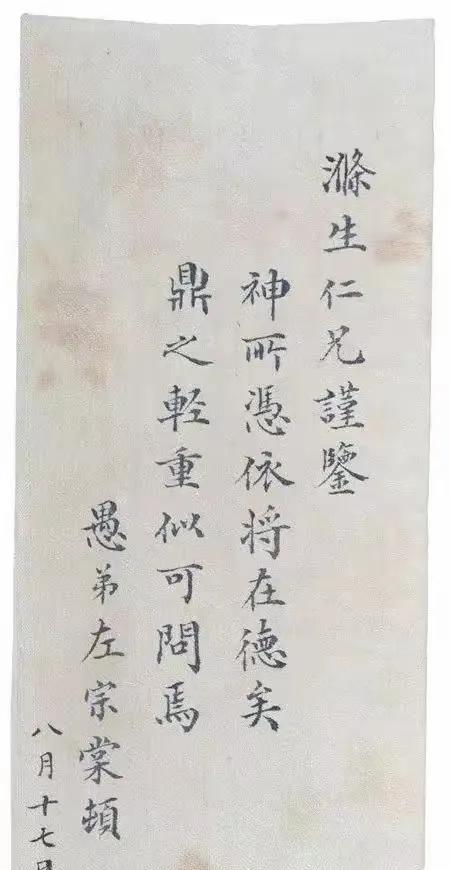 滌生仁兄謹鑒
神所憑依将在德矣
鼎之輕重似可問焉
愚弟左宗棠頓
八月十七日